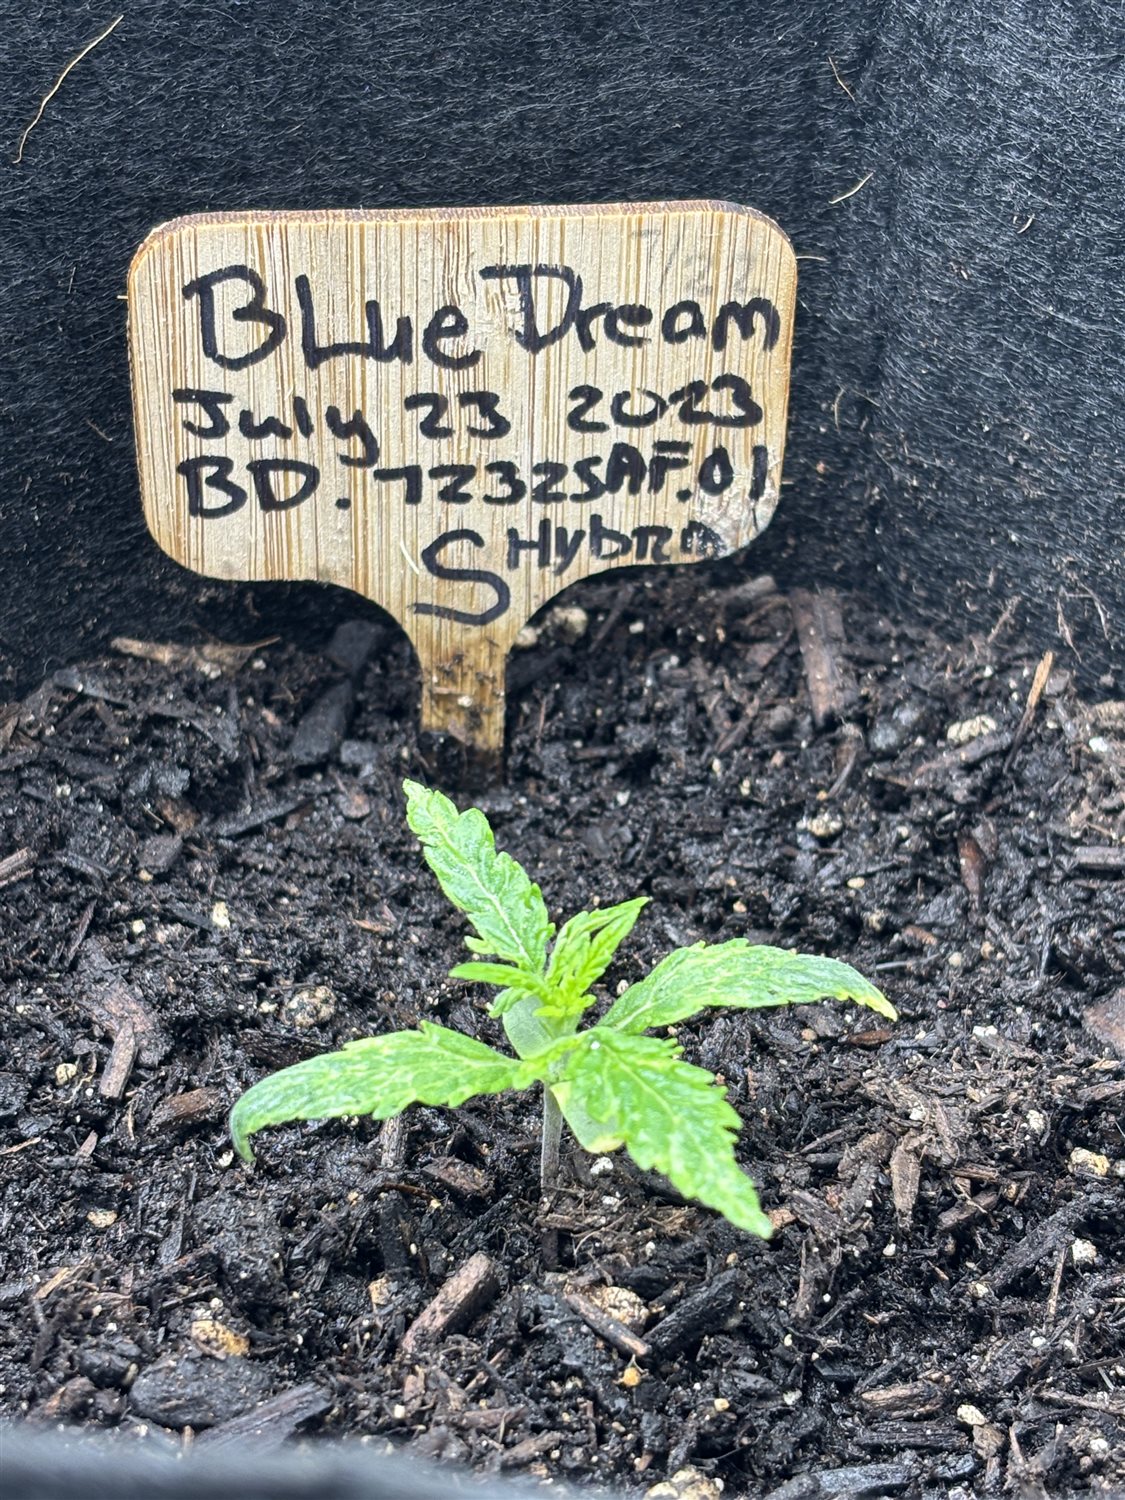 BLue Dream
July 23 2023
BD. 72325AF.01
S Hybrd